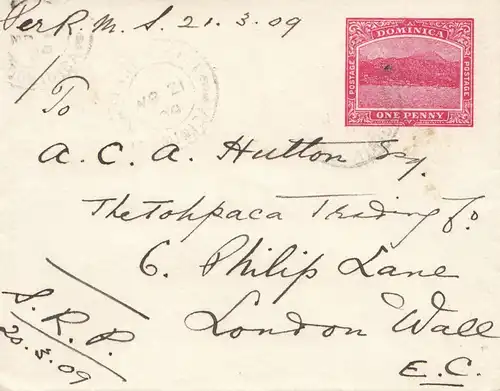 Per R. M. S. 21. 3. 09
DOMINICA
POSTAGE
POSTAGE
ONE PENNY
To
A. C. A. Hutton Esq.
The Tohpaca Trading Co
6. Philip Lane
London Wall
E.C.
S. R. P.
20.3.09